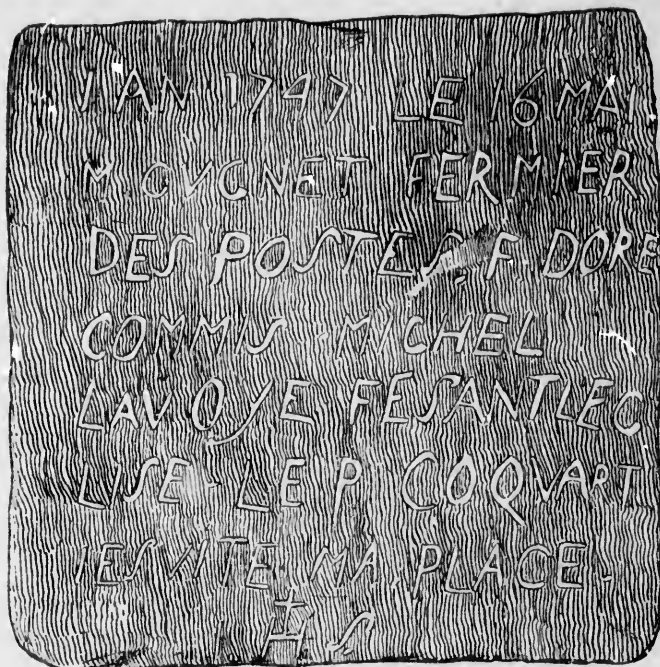 I AN 1747 LE 16 MAI
M CVGNET FERMIER
DES POSTES F. DORE
COMMIS MICHEL
LAVOYE FESANT LEC
LISE LE P COQVART
IESVITE MA PLACE.
IHS